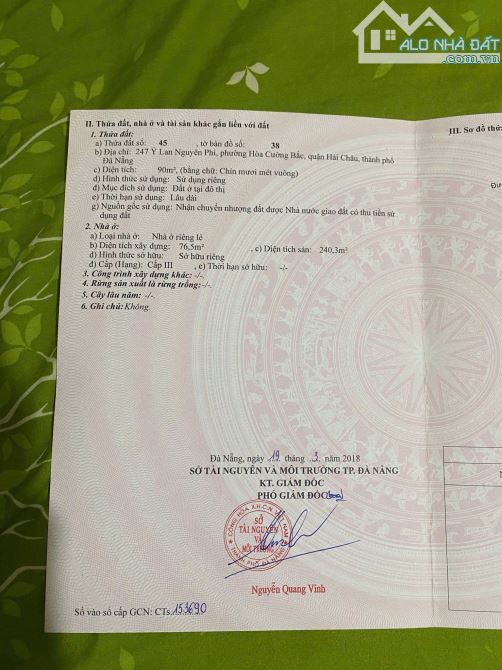 ALO NHÀ ĐẤT
.com.vn
II. Thửa đất, nhà ở và tài sản khác gắn liền với đất
1. Thửa đất:
a) Thửa đất số: 45 , tờ bản đồ số: 38
b) Địa chỉ: 247 Ỷ Lan Nguyên Phi, phường Hòa Cường Bắc, quận Hải Châu, thành phố
Đà Nẵng
c) Diện tích: 90m², (bằng chữ: Chín mươi mét vuông)
d) Hình thức sử dụng: Sử dụng riêng
đ) Mục đích sử dụng: Đất ở tại đô thị
e) Thời hạn sử dụng: Lâu dài
g) Nguồn gốc sử dụng: Nhận chuyển nhượng đất được Nhà nước giao đất có thu tiền sử
dụng đất
2. Nhà ở:
a) Loại nhà ở: Nhà ở riêng lẻ
b) Diện tích xây dựng: 76,5m² , c) Diện tích sàn: 240,3m²
d) Hình thức sở hữu: Sở hữu riêng
đ) Cấp (Hạng): Cấp III , e) Thời hạn sở hữu: -/-
3. Công trình xây dựng khác: -/-
4. Rừng sản xuất là rừng trồng: -/-
5. Cây lâu năm: -/-
6. Ghi chú: Không.
III. Sơ đồ thửa
Đà Nẵng, ngày 19 tháng 3 năm 2018
SỞ TÀI NGUYÊN VÀ MÔI TRƯỜNG TP. ĐÀ NẴNG
KT. GIÁM ĐỐC
PHÓ GIÁM ĐỐC
CỘNG HÒA X.H.C.N VIỆT NAM
SỞ
TÀI NGUYÊN
VÀ
MÔI TRƯỜNG
THÀNH PHỐ ĐÀ NẴNG
Nguyễn Quang Vinh
Số vào sổ cấp GCN: CTs.153690